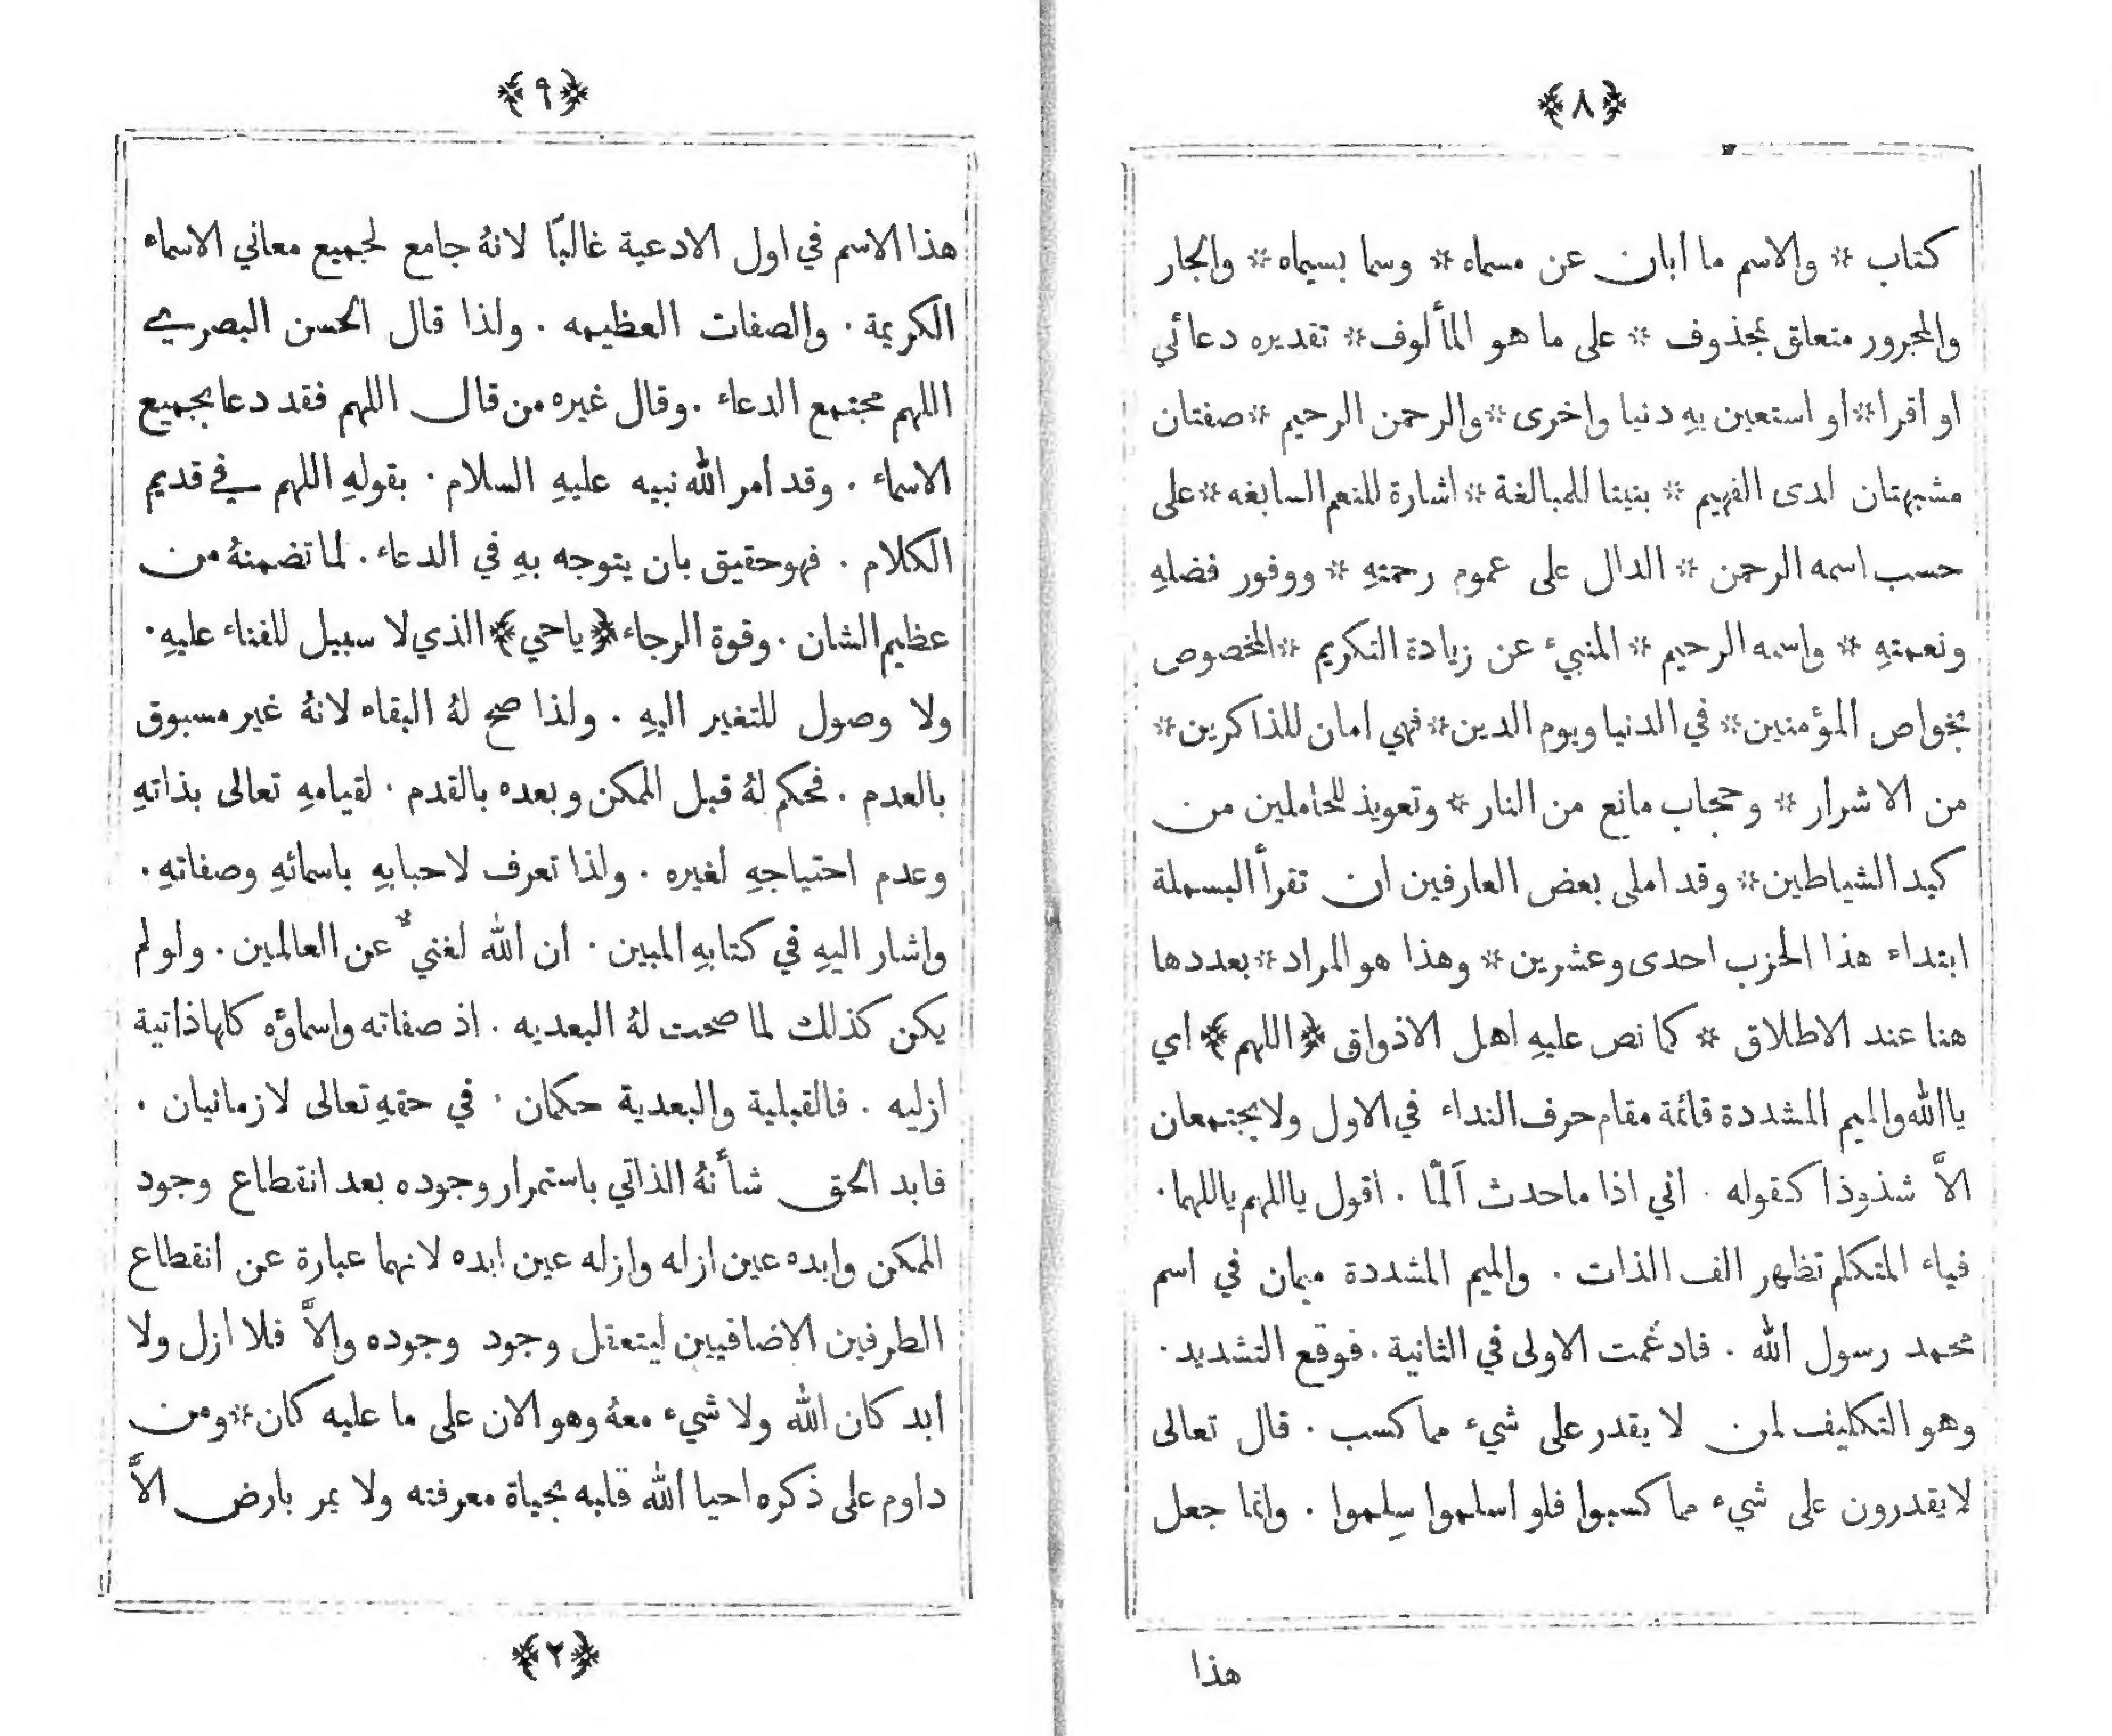 ﴿٨﴾
كتاب * والاسم ما أبان عن مسماه * وسما بسيماه * والجار
والمجرور متعلق بمحذوف * على ما هو المألوف * تقديره دعائي
او اقرا * او استعين بهِ دنيا واخرى * والرحمن الرحيم * صفتان
مشبهتان لدى الفهيم * بنيتا للمبالغة * اشارة للنعم السابغه * على
حسب اسمه الرحمن * الدال على عموم رحمتهِ * ووفور فضلهِ
ونعمتهِ * واسمه الرحيم * المنبيء عن زيادة التكريم * المخصوص
بخواص المؤمنين * في الدنيا ويوم الدين * فهي امان للذاكرين *
من الاشرار * وحجاب مانع من النار * وتعويذ للحاملين من
كيد الشياطين * وقد املى بعض العارفين ان تقرأ البسملة
ابتداء هذا الحزب احدى وعشرين * وهذا هو المراد * بعددها
هنا عند الاطلاق * كما نص عليهِ اهل الاذواق ﴿اللهم﴾ اي
ياالله والميم المشددة قائمة مقام حرف النداء في الاول ولا يجتمعان
الاَّ شذوذا كقوله . اني اذا ما حدث آلمّا . اقول يا اللهم يا اللهما .
فياء المتكلم تظهر الف الذات . والميم المشددة ميمان في اسم
محمد رسول الله . فادغمت الاولى في الثانية . فوقع التشديد .
وهو التكليف لمن لا يقدر على شيء مما كسب . قال تعالى
لا يقدرون على شيء مما كسبوا فلو اسلموا سِلموا . وانما جعل
هذا
﴿٩﴾
هذا الاسم في اول الادعية غالبًا لانهُ جامع لجميع معاني الاسماء
الكريمة . والصفات العظيمه . ولذا قال الحسن البصري
اللهم مجتمع الدعاء . وقال غيره من قال اللهم فقد دعا بجميع
الاسماء . وقد امر الله نبيه عليهِ السلام . بقولهِ اللهم في قديم
الكلام . فهو حقيق بان يتوجه بهِ في الدعاء . لما تضمنهُ من
عظيم الشان . وقوة الرجاء ﴿يا حي﴾ الذي لا سبيل للفناء عليهِ .
ولا وصول للتغير اليهِ . ولذا صح لهُ البقاء لانهُ غير مسبوق
بالعدم . فحكم لهُ قبل الممكن وبعده بالقدم . لقيامهِ تعالى بذاتهِ
وعدم احتياجهِ لغيره . ولذا تعرف لاحبابهِ باسمائهِ وصفاتهِ .
واشار اليهِ في كتابهِ المبين . ان الله لغنيٌّ عن العالمين . ولو لم
يكن كذلك لما صحت لهُ البعديه . اذ صفاته واسماؤه كلها ذاتية
ازليه . فالقبلية والبعدية حكمان . في حقهِ تعالى لا زمانيان .
فابد الحق شأنهُ الذاتي باستمرار وجوده بعد انقطاع وجود
الممكن وابده عين ازله وازله عين ابده لانهما عبارة عن انقطاع
الطرفين الاضافيين ليتعقل وجود وجوده والاَّ فلا ازل ولا
ابد كان الله ولا شيء معهُ وهو الان على ما عليه كان * ومن
داوم على ذكره احيا الله قلبه بحياة معرفته ولا يمر بارض الاَّ
﴿٢﴾